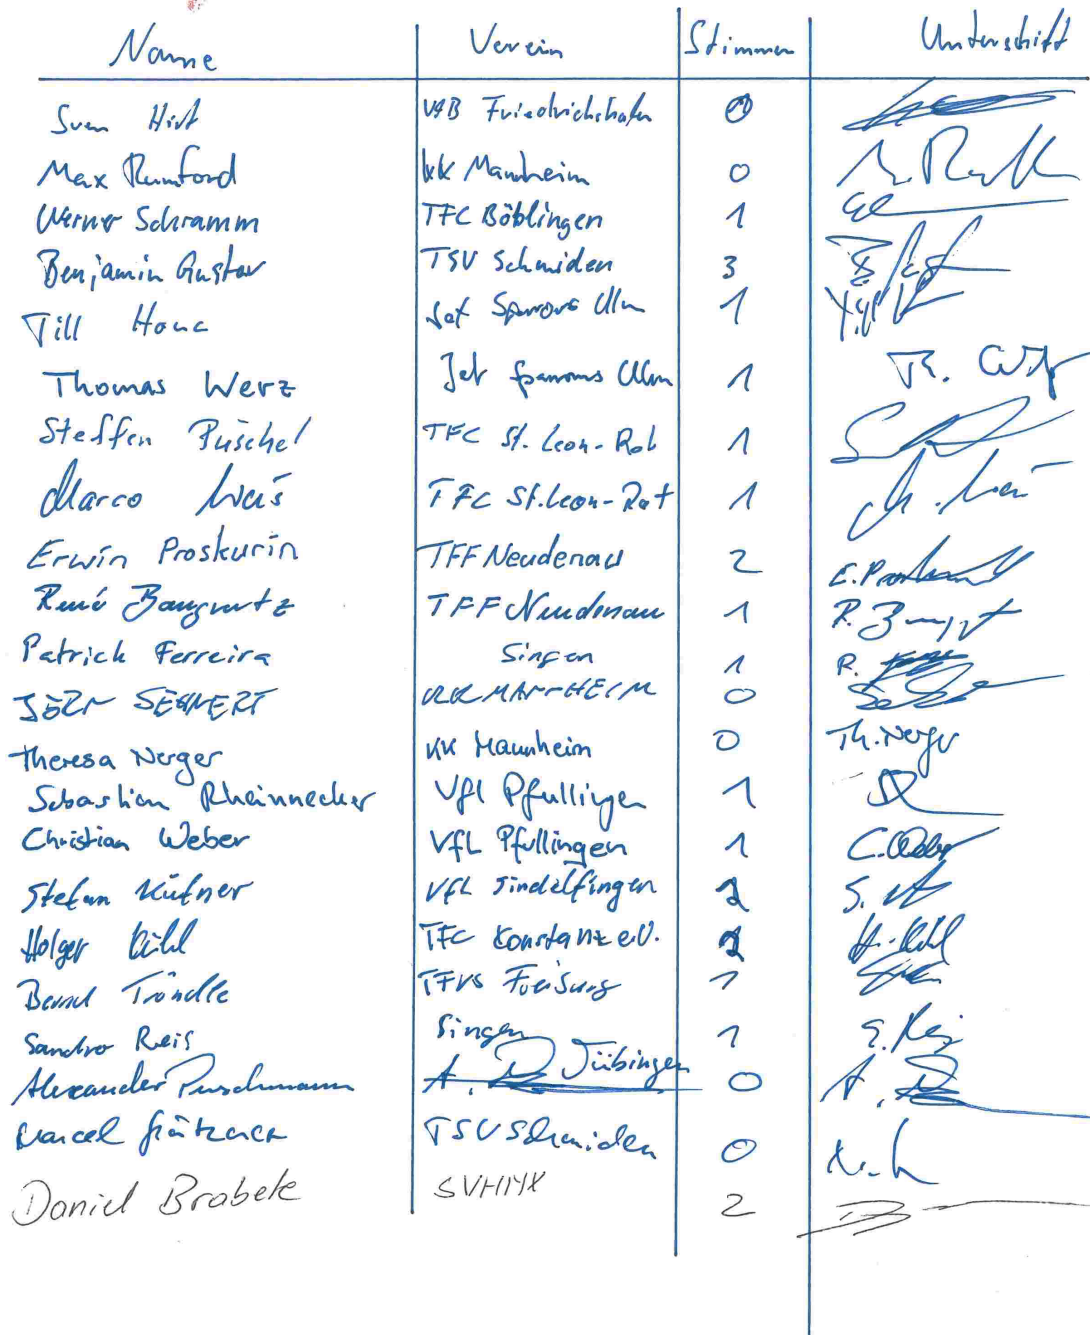 Name Verein Stimmen Unterschrift
Sven Hirt VfB Friedrichshafen
Max Rumford KK Mannheim 0
Werner Schramm TFC Böblingen 1
Benjamin Gustav TSV Schmiden 3
Till Jet Sparrows Ulm 1
Thomas Werz Jet Sparrows Ulm 1 Th.
Steffen Püschel TFC St. Leon-Rot 1
Marco TFC St. Leon-Rot 1
Erwin Proskurin TFF Neudenau 2 E.
René TFF Neudenau 1 R.
Patrick Ferreira Singen 1 R.
KK MANNHEIM 0
Theresa Nerger KK Mannheim 0 Th. Nerger
Sebastian Rheinnecker VfL Pfullingen 1
Christian Weber VfL Pfullingen 1 C. Weber
Stefan Küfner VfL Sindelfingen S.
Holger Kühl TFC Konstanz e.V. H. Kühl
Bernd Tröndle 1
Sandro Reis Singen 1 S. Reis
Alexander Puschmann Tübingen 0 A.
Marcel TSV Schmiden 0
Daniel Brabetz 2